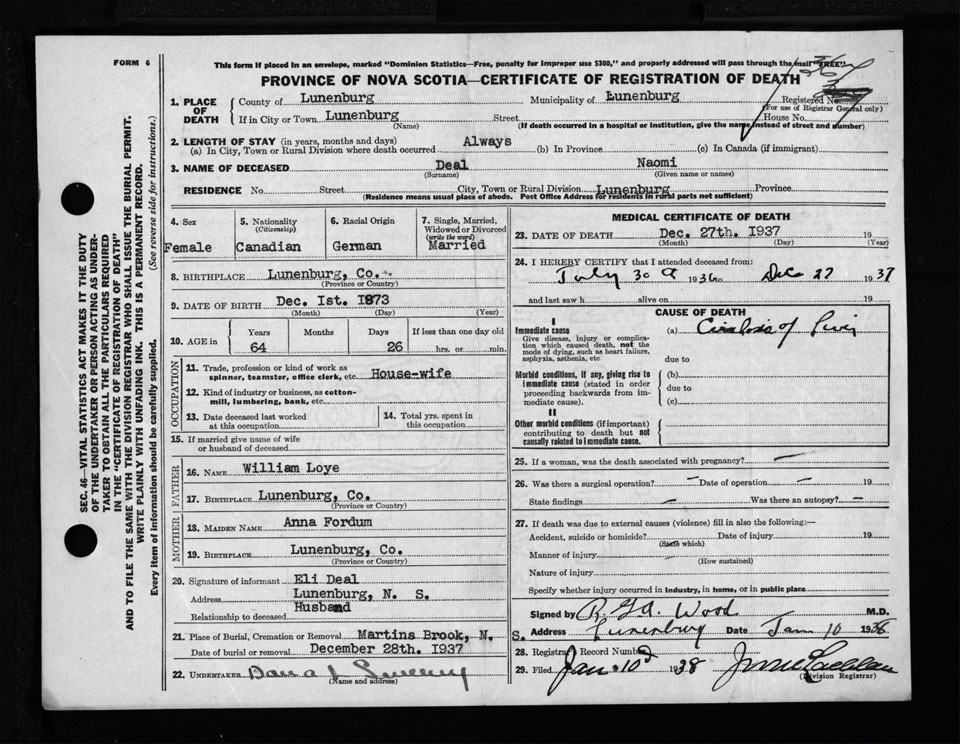 FORM 6
This form if placed in an envelope, marked "Dominion Statistics—Free, penalty for improper use $300," and properly addressed will pass through the mail "FREE"
PROVINCE OF NOVA SCOTIA—CERTIFICATE OF REGISTRATION OF DEATH
1. PLACE OF DEATH
County of Lunenburg Municipality of Lunenburg Registered No.
(For use of Registrar General only)
If in City or Town Lunenburg Street House No.
(Name) (If death occurred in a hospital or institution, give the name instead of street and number)
2. LENGTH OF STAY (in years, months and days)
(a) In City, Town or Rural Division where death occurred Always (b) In Province (c) In Canada (if immigrant)
3. NAME OF DECEASED Deal Naomi
(Surname) (Given name or names)
RESIDENCE No. Street City, Town or Rural Division Lunenburg Province
(Residence means usual place of abode. Post Office Address for residents in rural parts not sufficient)
4. Sex 5. Nationality 6. Racial Origin 7. Single, Married,
(Citizenship) Widowed or Divorced
(write the word)
Female Canadian German Married
8. BIRTHPLACE Lunenburg, Co.
(Province or Country)
9. DATE OF BIRTH Dec. Ist. I873
(Month) (Day) (Year)
10. AGE in Years Months Days If less than one day old
64 26 hrs. or min.
OCCUPATION
11. Trade, profession or kind of work as
spinner, teamster, office clerk, etc. House-wife
12. Kind of industry or business, as cotton-
mill, lumbering, bank, etc.
13. Date deceased last worked
at this occupation
14. Total yrs. spent in
this occupation
15. If married give name of wife
or husband of deceased
FATHER
16. NAME William Loye
17. BIRTHPLACE Lunenburg, Co.
(Province or Country)
MOTHER
18. MAIDEN NAME Anna Fordum
19. BIRTHPLACE Lunenburg, Co.
(Province or Country)
20. Signature of informant Eli Deal
Address Lunenburg, N. S.
Relationship to deceased Husband
21. Place of Burial, Cremation or Removal Martins Brook, N. S.
Date of burial or removal December 28th. I937
22. UNDERTAKER
(Name and address)
MEDICAL CERTIFICATE OF DEATH
23. DATE OF DEATH Dec. 27th. I937 19
(Month) (Day) (Year)
24. I HEREBY CERTIFY that I attended deceased from:
July 30 1936 Dec 27 1937
and last saw h alive on 19
CAUSE OF DEATH
I
Immediate cause (a) Cirrhosis of Liver
Give disease, injury or complica-
tion which caused death, not the
mode of dying, such as heart failure,
asphyxia, asthenia, etc.
due to
Morbid conditions, if any, giving rise to (b)
immediate cause (stated in order due to
proceeding backwards from im-
mediate cause). (c)
II
Other morbid conditions (if important)
contributing to death but not
causally related to immediate cause.
25. If a woman, was the death associated with pregnancy? —
26. Was there a surgical operation? — Date of operation — 19
State findings — Was there an autopsy? —
27. If death was due to external causes (violence) fill in also the following:—
Accident, suicide or homicide? Date of injury 19
(State which)
Manner of injury
(How sustained)
Nature of injury
Specify whether injury occurred in industry, in home, or in public place
Signed by Wood M.D.
Address Lunenburg Date Jan 10 1938
28. Registrar Record Number
29. Filed Jan. 10 1938
(Division Registrar)
SEC. 46—VITAL STATISTICS ACT MAKES IT THE DUTY
OF THE UNDERTAKER OR PERSON ACTING AS UNDER-
TAKER TO OBTAIN ALL THE PARTICULARS REQUIRED
IN THE "CERTIFICATE OF REGISTRATION OF DEATH"
AND TO FILE THE SAME WITH THE DIVISION REGISTRAR WHO SHALL ISSUE THE BURIAL PERMIT.
WRITE PLAINLY WITH UNFADING INK. THIS IS A PERMANENT RECORD.
Every item of information should be carefully supplied. (See reverse side for instructions.)